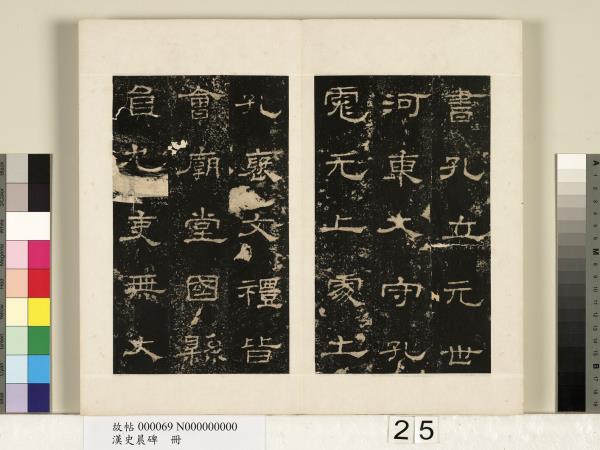 書孔立元世
河東大守孔
彪元上處土
孔褒文禮皆
會廟堂國縣
員冗吏無大
故帖 000069 N000000000
漢史晨碑 冊
25
A
M
B